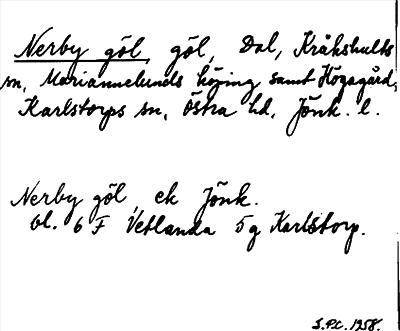 Nerby göl, göl, Dal, Kråkshults
sn, Mariannelunds köping samt Högagård,
Karlstorps sn, Östra hd, Jönk. l.
Nerby göl, ek Jönk.
bl. 6 F Vetlanda 5g Karlstorp.
S.P.C. 1958.